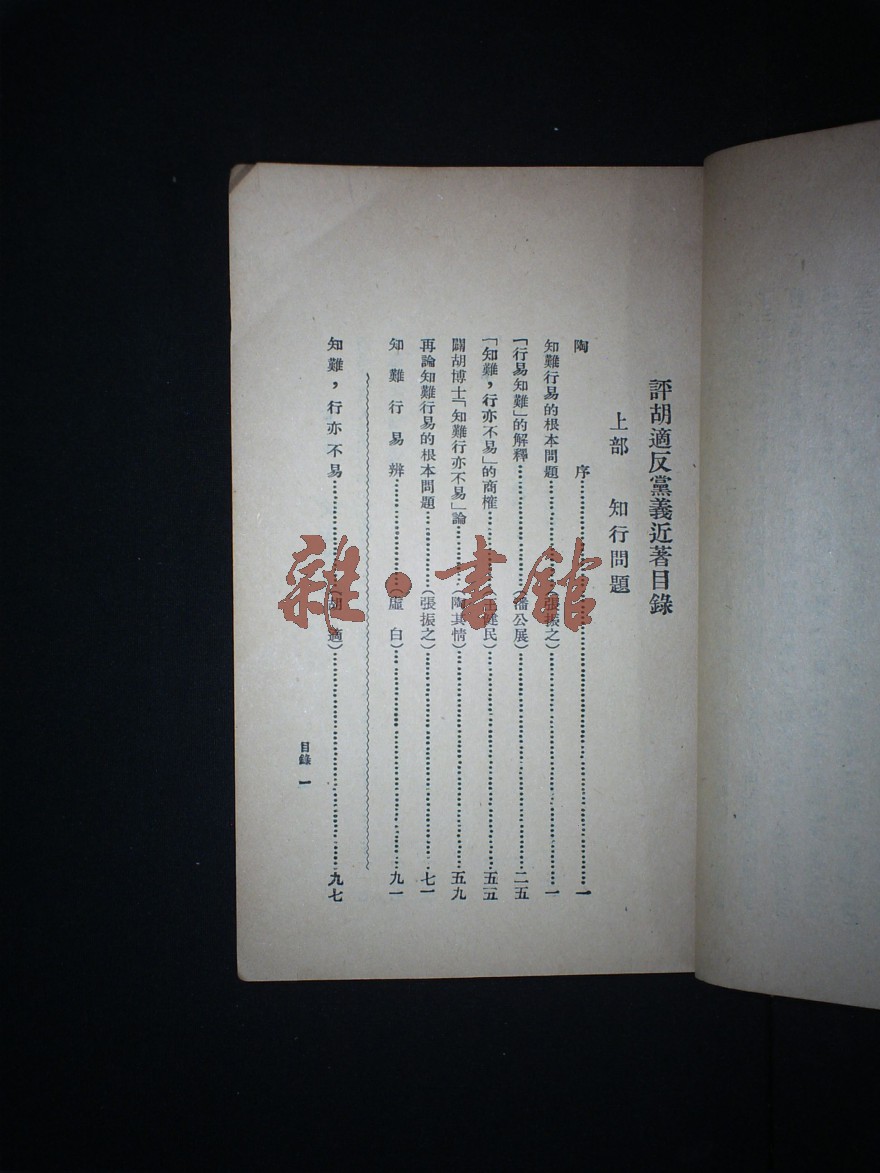 評胡適反黨義近著目錄
上部 知行問題
陶序……一
知難行易的根本問題……(張振之)……一
「行易知難」的解釋……(潘公展)……二五
「知難,行亦不易」的商榷……(汪健民)……五五
闢胡博士「知難行亦不易」論……(陶其情)……五九
再論知難行易的根本問題……(張振之)……七一
知難行易辨……(虛白)……九一
知難,行亦不易……(胡適)……九七
目錄 一
雜·書館